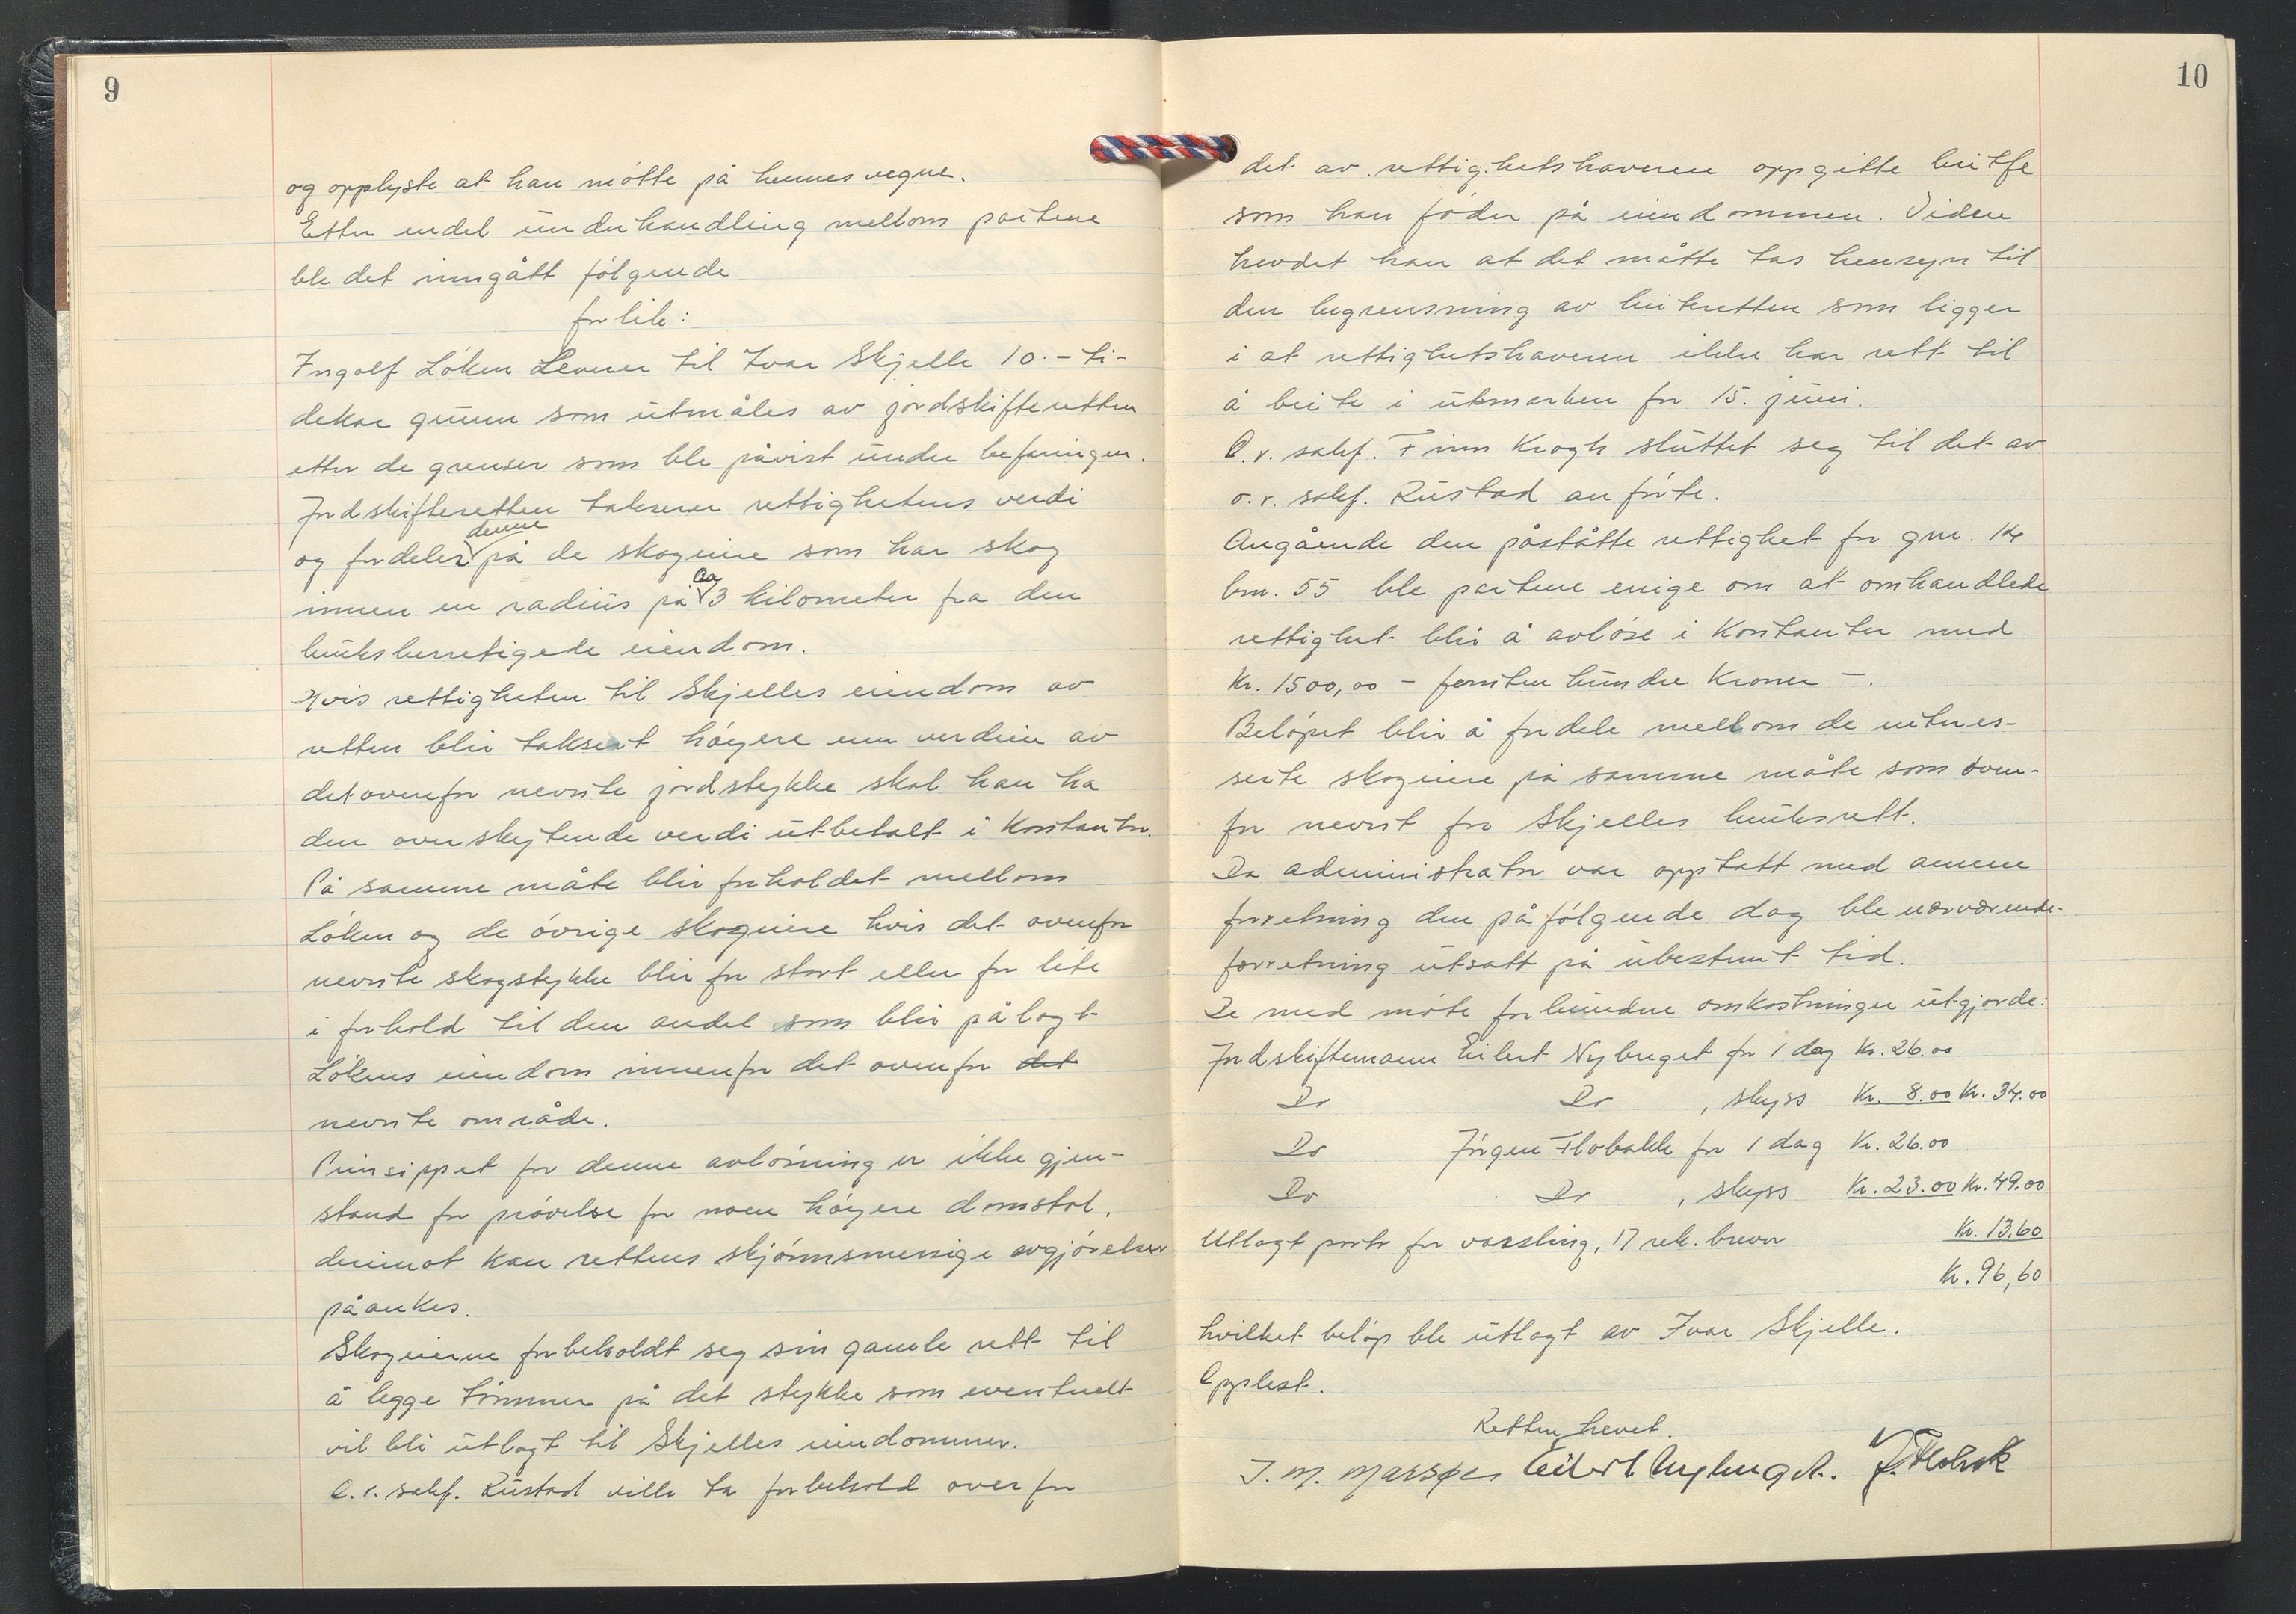 9
og opplyste at han møtte på hennes vegne.
Etter endel underhandling mellom partene
ble det inngått følgende
forlik:
Ingolf Løken Leverer til Ivar Skjelle 10.- ti-
dekar grunn som utmåles av jordskifteretten
etter de grenser som ble påvist under befaringen.
Jordskifteretten takserer rettighetens verdi
og fordeler denne på de skogeiere som har skog
innen en radius på ca 3 kilometer fra den
bruksberettigede eiendom.
Hvis rettigheten til Skjelles eiendom av
retten blir taksert høyere enn verdien av
det ovenfor nevnte jordstykke skal han ha
den overskytende verdi utbetalt i Kontanter.
På samme måte blir forholdet mellom
Løken og de øvrige skogeiere hvis det ovenfor
nevnte skogstykke blir for stort eller for lite
i forhold til den andel som blir pålagt
Løkens eiendom innenfor det ovenfor det
nevnte område.
Prinsippet for denne avløsning er ikke gjen-
stand for prøvelse for noen høyere domstol,
derimot kan rettens skjønnsmessige avgjørelser
påankes.
Skogeierne forbeholdt seg sin gamle rett til
å legge tømmer på det stykke som eventuelt
vil bli utlagt til Skjelles eiendommer.
O.r. sakf. Rustad ville ta forbehold overfor
10
det av rettighetshaveren oppgitte beitfe
som han føder på eiendommen. Videre
hevdet han at det måtte tas hensyn til
den begrensning av beiteretten som ligger
i at rettighetshaveren ikke har rett til
å beite i utmarken før 15. juni.
O.r. sakf. Finn Krogh sluttet seg til det av
o.r. sakf. Rustad anførte.
Angående den påståtte rettighet for gnr. 14
bnr. 55 ble partene enige om at omhandlede
rettighet blir å avløse i Kontanter med
Kr. 1500,00 - femten hundre Kroner -.
Beløpet blir å fordele mellom de interes-
serte skogeiere på samme måte som oven-
for nevnt for Skjelles bruksrett.
Da administrator var opptatt med annen
forretning den påfølgende dag ble nærværende
forretning utsatt på ubestemt tid.
De med møte forbundne omkostninger utgjorde:
Jordskiftemann Eilert Nybruget for 1 dag Kr. 26.00
Do Do , skyss Kr. 8.00 Kr. 34.00
Do Jørgen Flobakk for 1 dag Kr. 26.00
Do Do , skyss Kr. 23.00 Kr. 49.00
Utlagt porto for varsling, 17 rek. brever Kr. 13,60
Kr. 96,60
hvilket beløp ble utlagt av Ivar Skjelle.
Opplest.
Retten hevet.
J. M.